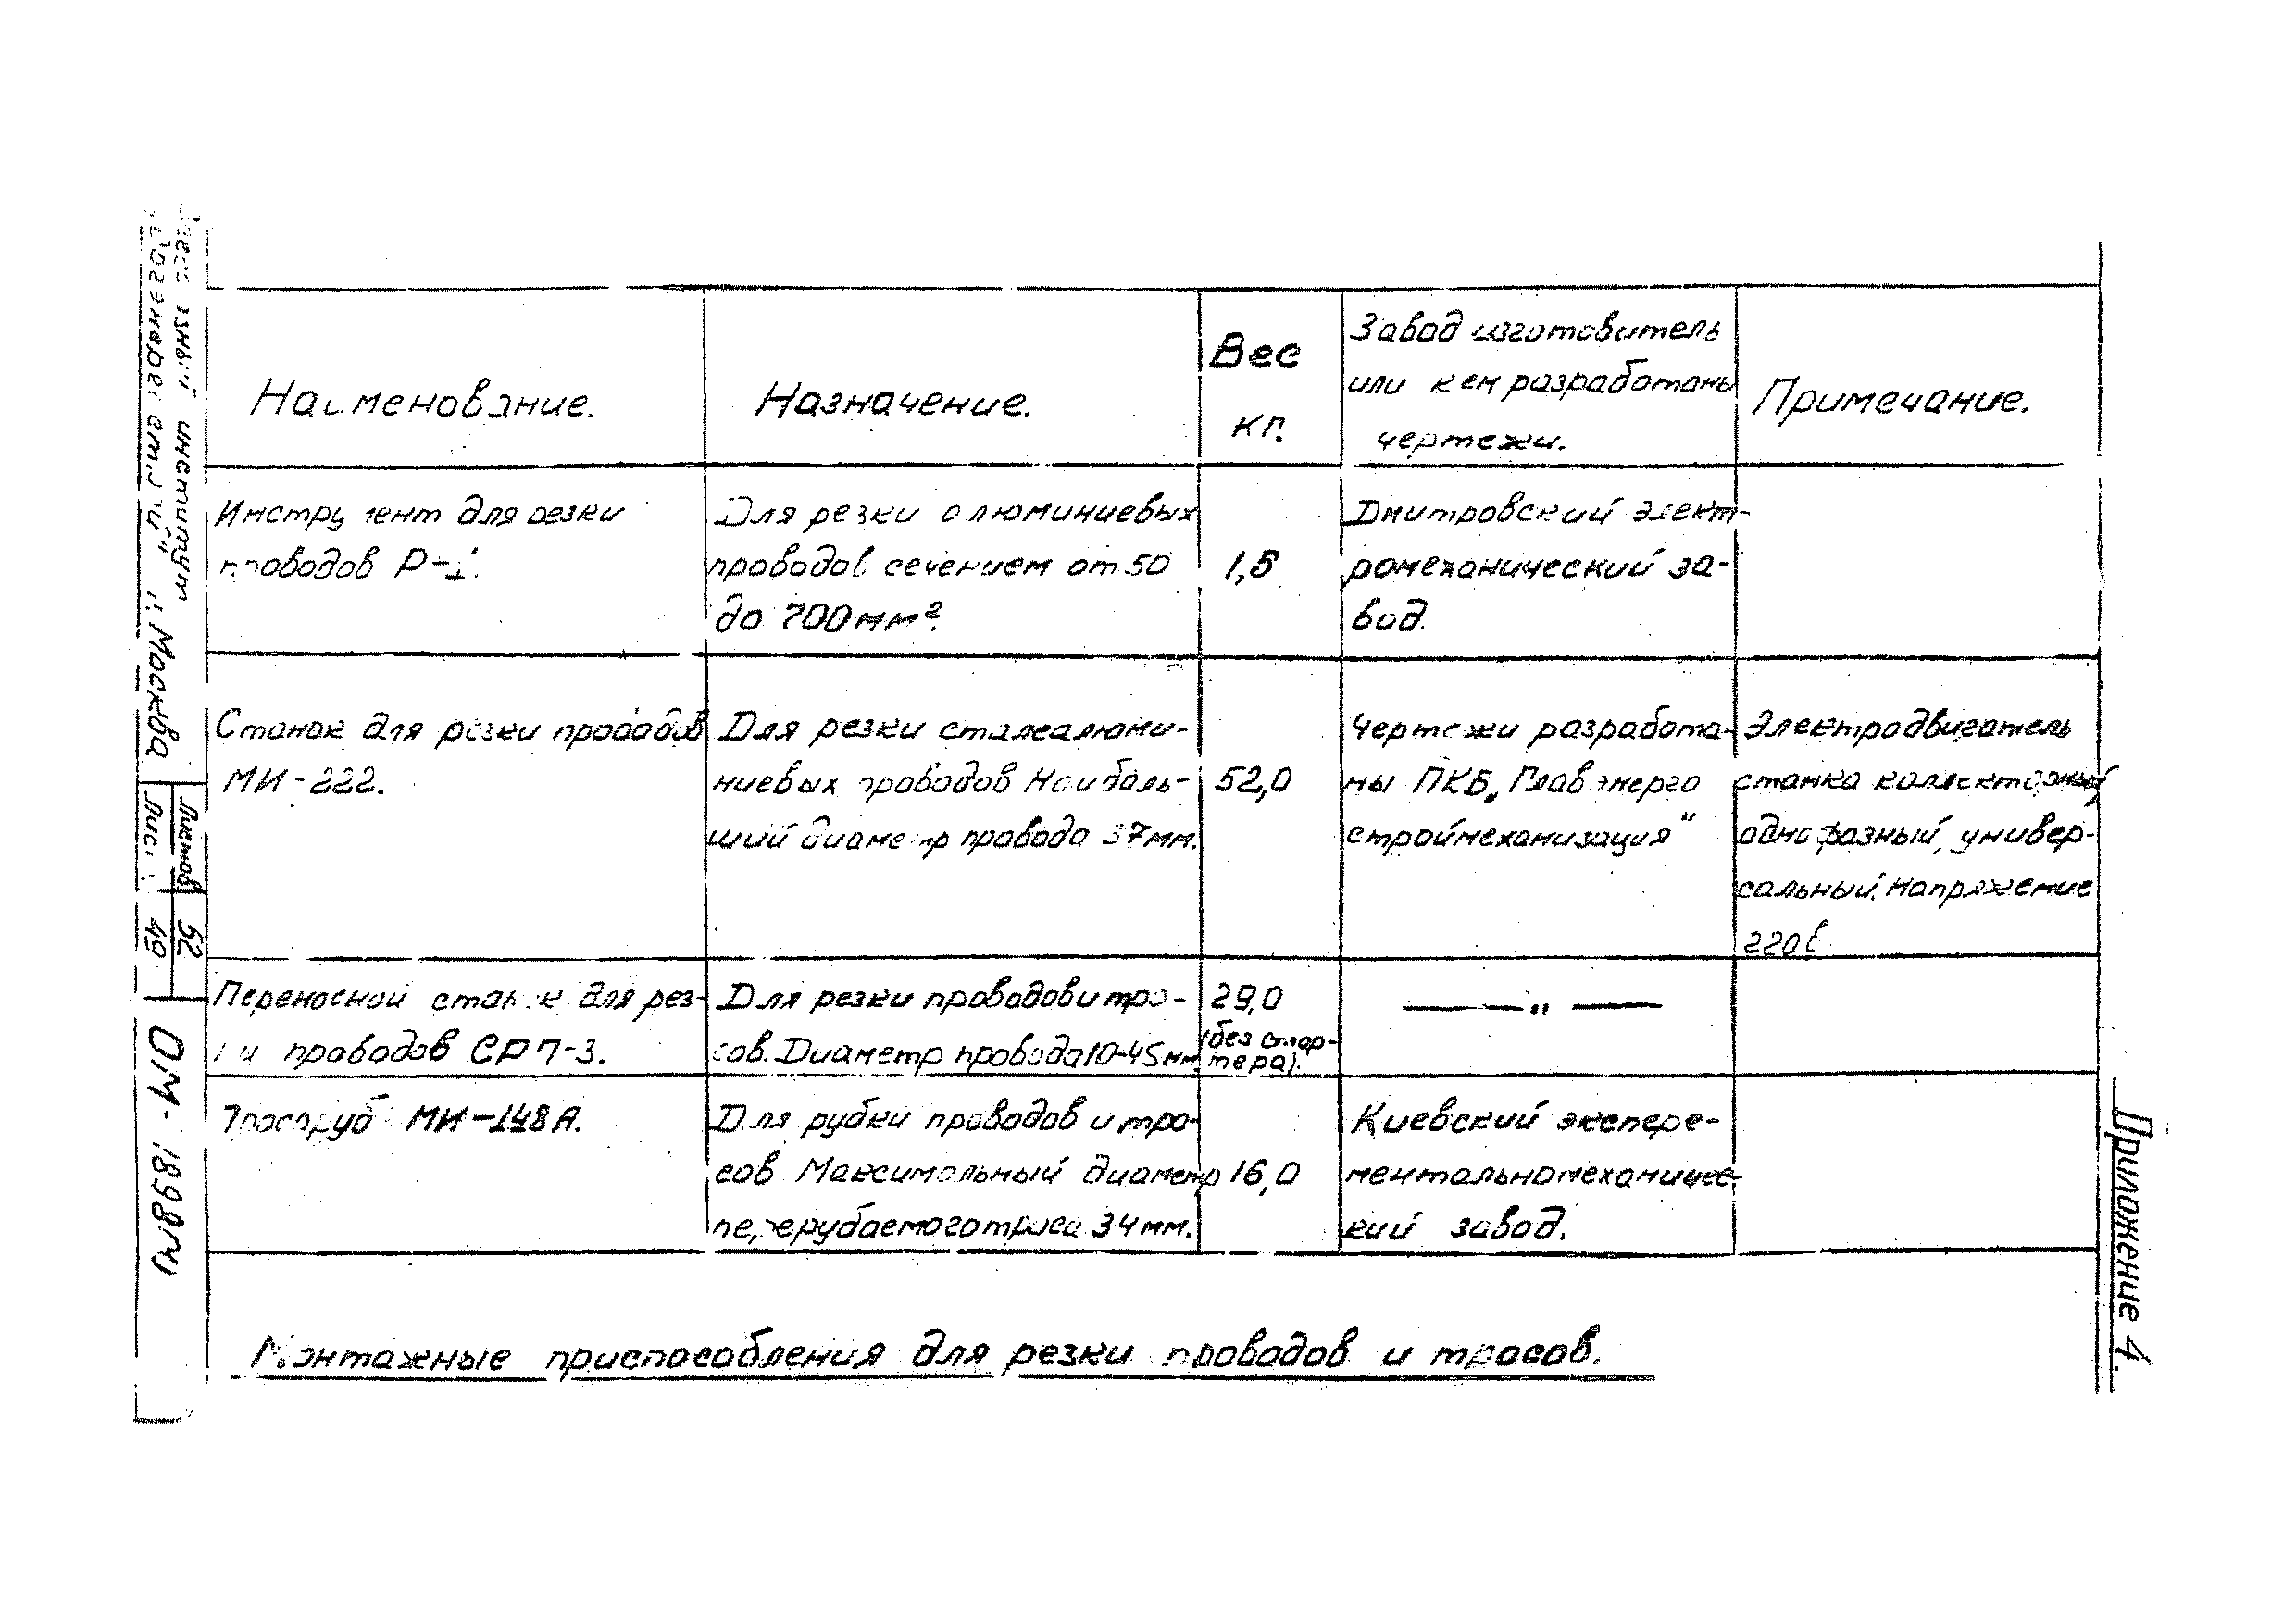 Приложение 4.
Наименование.
Назначение.
Вес
кг.
Завод изготовитель
или кем разработаны
чертежи.
Примечание.
Инструмент для резки
проводов Р-1.
Для резки алюминиевых
проводов сечением от 50
до 700 мм².
1,5
Дмитровский элект-
ромеханический за-
вод.
Станок для резки проводов
МИ-222.
Для резки сталеалюми-
ниевых проводов Наиболь-
ший диаметр провода 37мм.
52,0
Чертежи разработа-
ны ПКБ „Главэнерго
строймеханизация“
Электродвигатель
станка коллекторный
однофазный, универ-
сальный. Напряжение
220в
Переносной станок для рез-
ки проводов СРП-3.
Для резки проводов и тро-
сов. Диаметр провода 10-45 мм.
29,0
(без стар-
тера).
— „ —
Тросоруб МИ-148А.
Для рубки проводов и тро-
сов Максимальный диаметр
перерубаемого троса 34 мм.
16,0
Киевский экспере-
ментальномеханичес-
кий завод.
Монтажные приспособления для резки проводов и тросов.
институт
г. Москва
Листов 52
Лист 49
ОМ-1898ту